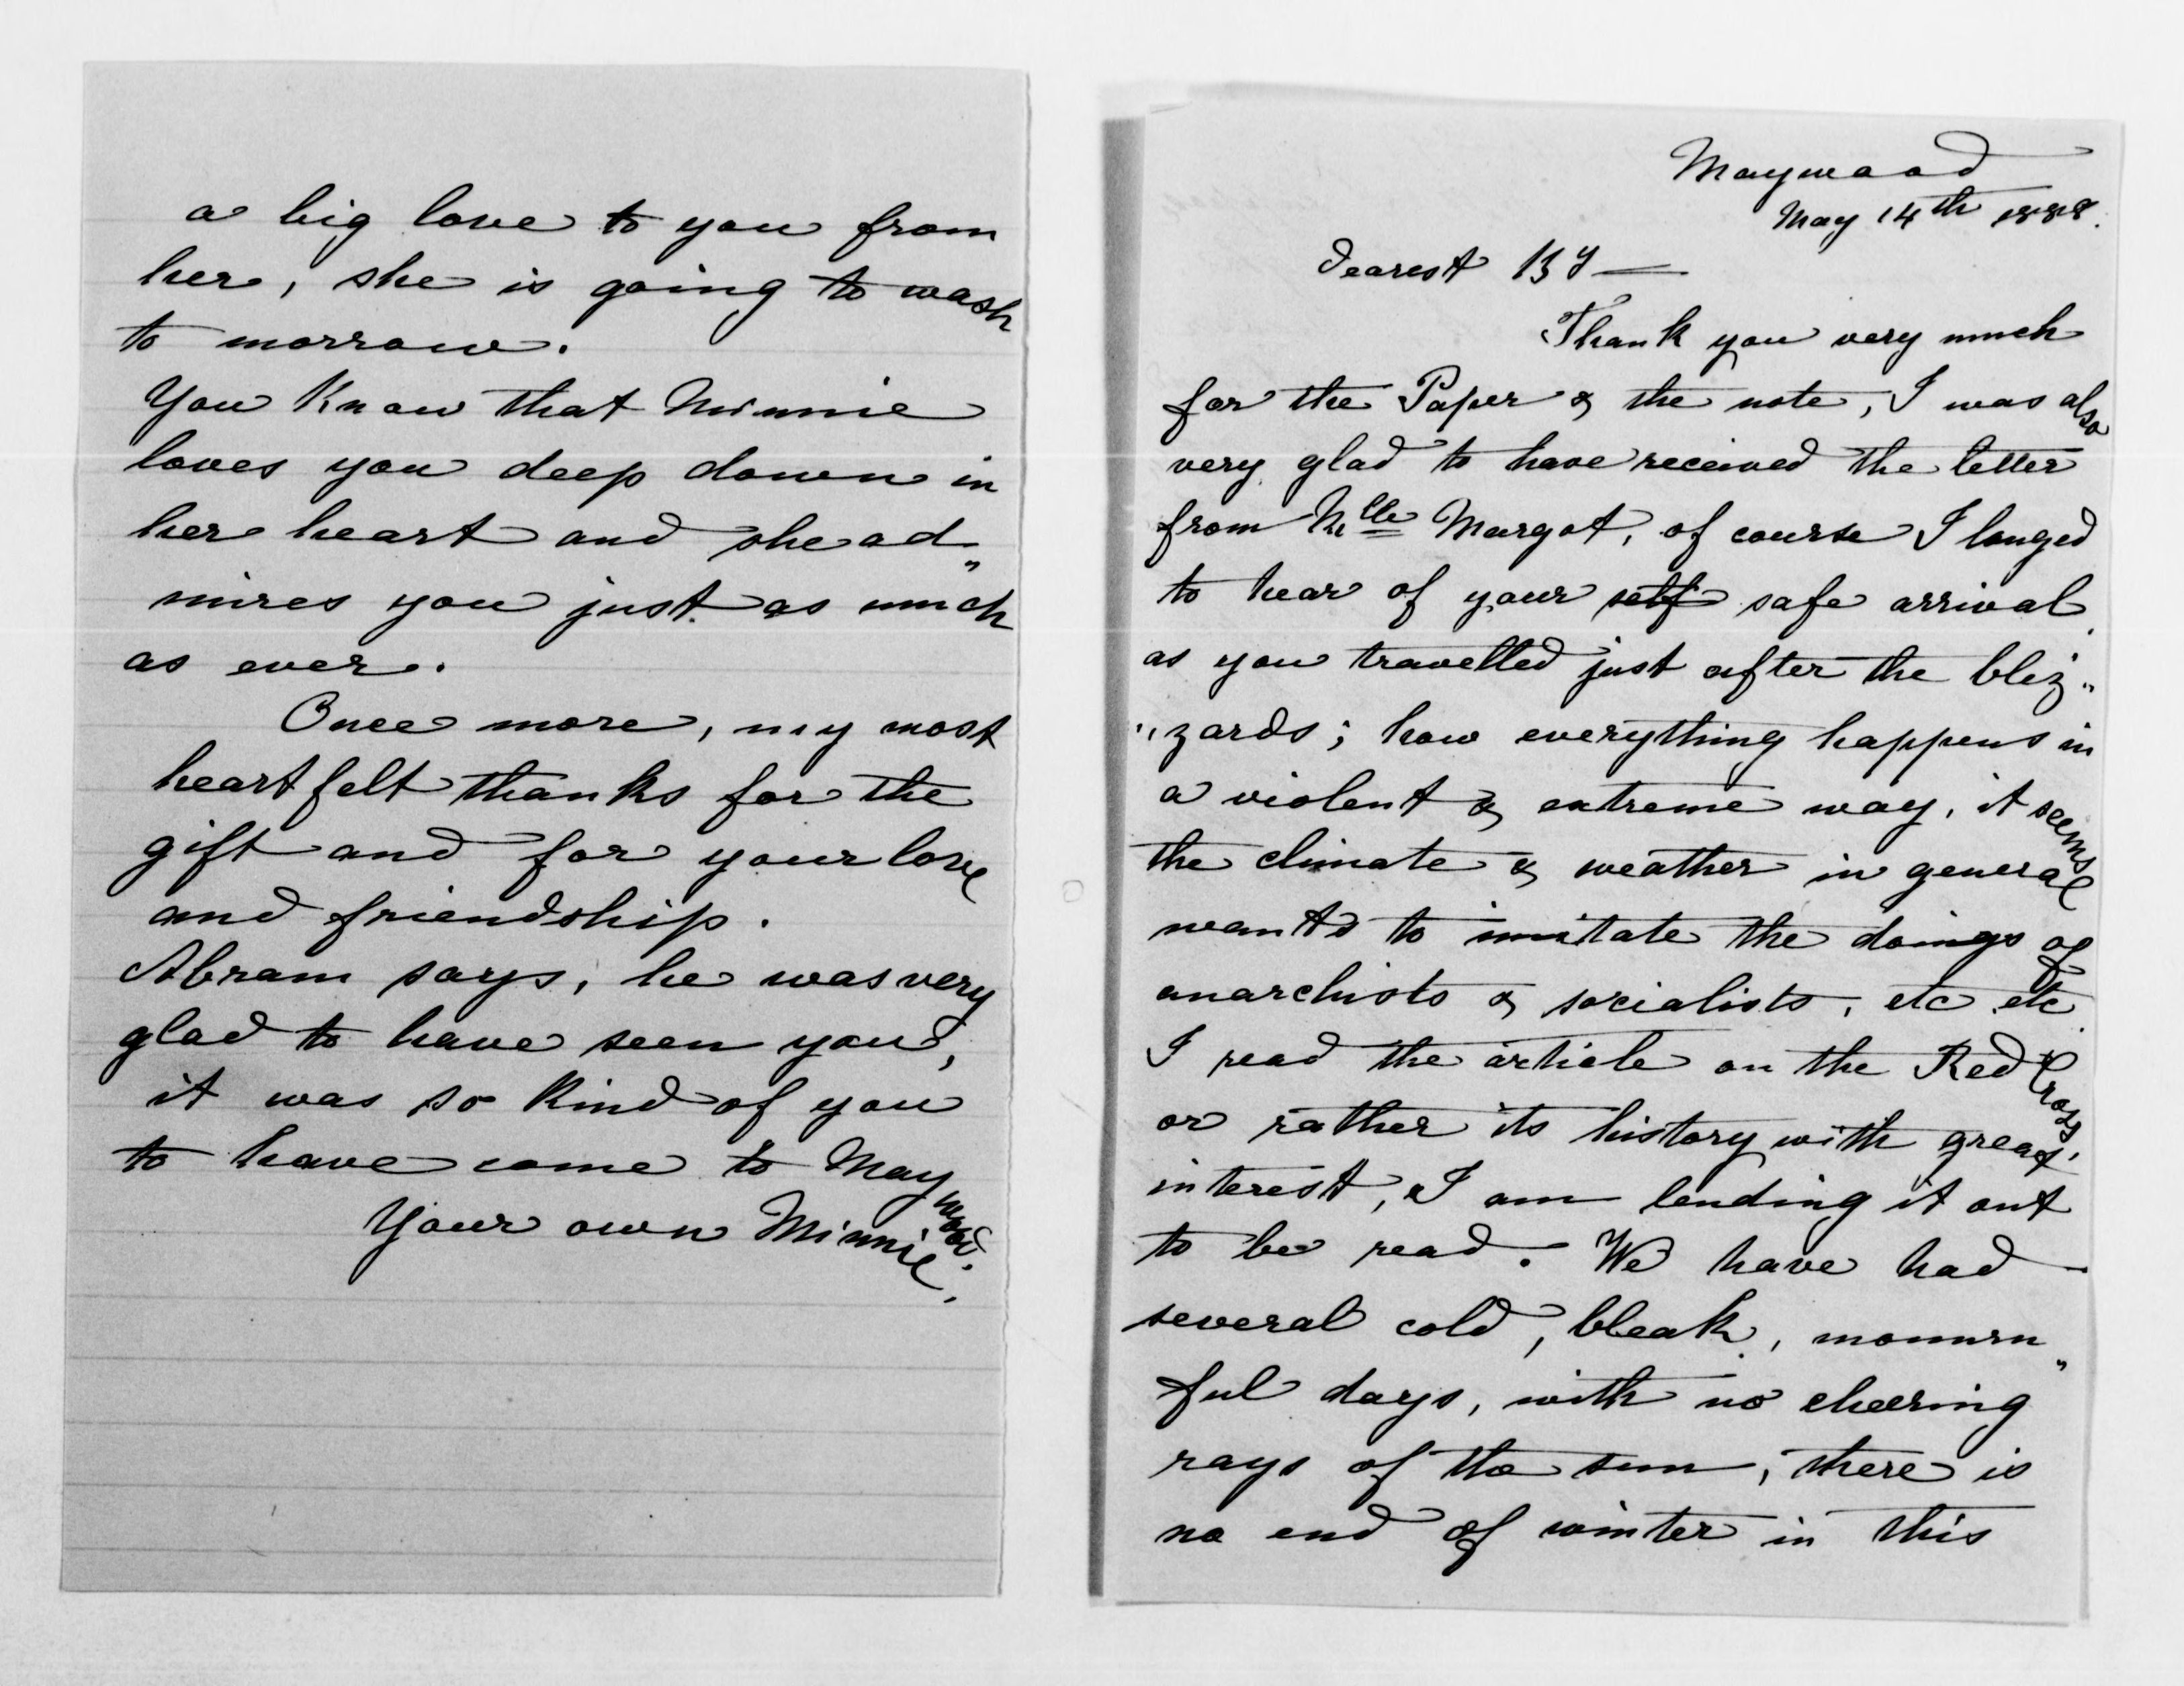 a big love to you from
her, she is going to wash
to morrow.
You Know that Minnie
loves you deep down in
her heart and she ad„
mires you just as much
as ever.
Once more, my most
heartfelt thanks for the
gift and for your love
and friendship.
Abram says, he was very
glad to have seen you,
it was so Kind of you
to have come to Maywood.
Your own Minnie.
Maywood
May 14th 1888.
Dearest
Thank you very much
for the Paper & the note, I was also
very glad to have received the letter
from Mlle Margot, of course I longed
to hear of your self safe arrival
as you travelled just after the bliz„
„zards; how everything happens in
a violent & extreme way, it seems
the climate & weather in general
wants to imitate the doings of
anarchists & socialists, etc etc
I read the article on the Red Cross,
or rather its history with great
interest, I am lending it out
to be read. We have had
several cold, bleak, mourn„
ful days, with no cheering
rays of the sun, there is
no end of winter in this